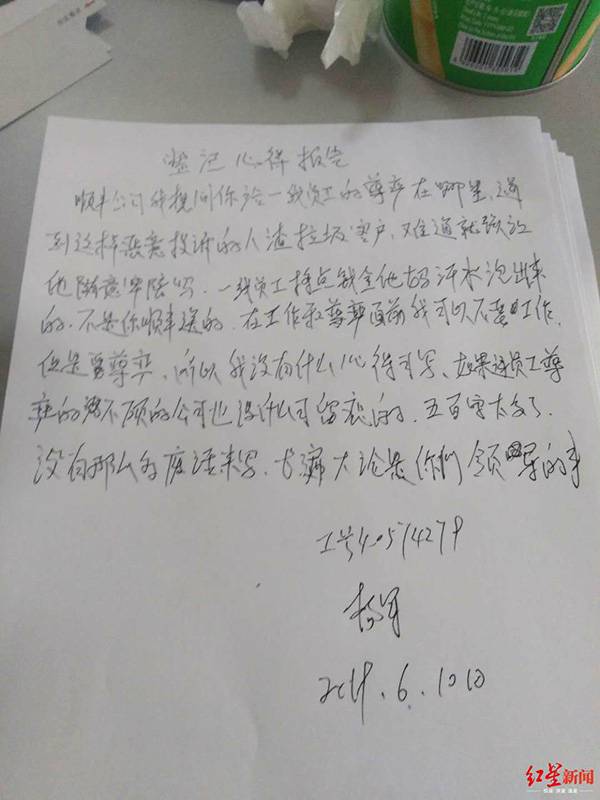 笔记心得报告
顺丰公司我想问你给一线员工的尊严在哪里,遇
到这样恶意投诉的人渣垃圾客户,难道就强让
他随意牢陪吗.一线员工挣点钱全他妈汗水泡出来
的.不是你顺丰送的.在工作和尊严面前我可以不要工作.
但是要尊严.所以我没有什么心得可写.如果连员工尊
严的都不顾的公司也没什么可留恋的.五百字太多了.
没有那么多废话来写.长篇大论是你们领导的事
工号40574279
6.10日
红星新闻